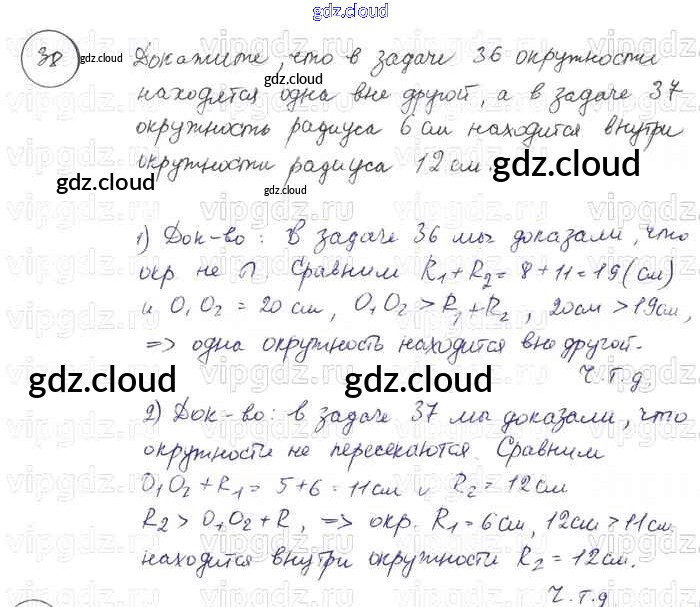 gdz.cloud
38 gdz.cloud Докажите, что в задаче 36 окружности
gdz.cloud
находятся одна вне другой, а в задаче 37
окружность радиуса 6 см находится внутри
окружности радиуса 12 см.
gdz.cloud gdz.cloud gdz.cloud
1) Док-во: В задаче 36 мы доказали, что
окр. не ∩. Сравним R₁ + R₂ = 8 + 11 = 19 (см)
и O₁O₂ = 20 см, O₁O₂ > R₁ + R₂, 20 см > 19 см,
=> одна окружность находится вне другой.
Ч.т.д.
gdz.cloud gdz.cloud
2) Док-во: в задаче 37 мы доказали, что
окружности не пересекаются. Сравним
O₁O₂ + R₁ = 5 + 6 = 11 см и R₂ = 12 см
R₂ > O₁O₂ + R₁ => окр. R₁ = 6 см, 12 см > 11 см
находится внутри окружности R₂ = 12 см.
Ч.т.д
vipgdz.ru vipgdz.ru vipgdz.ru